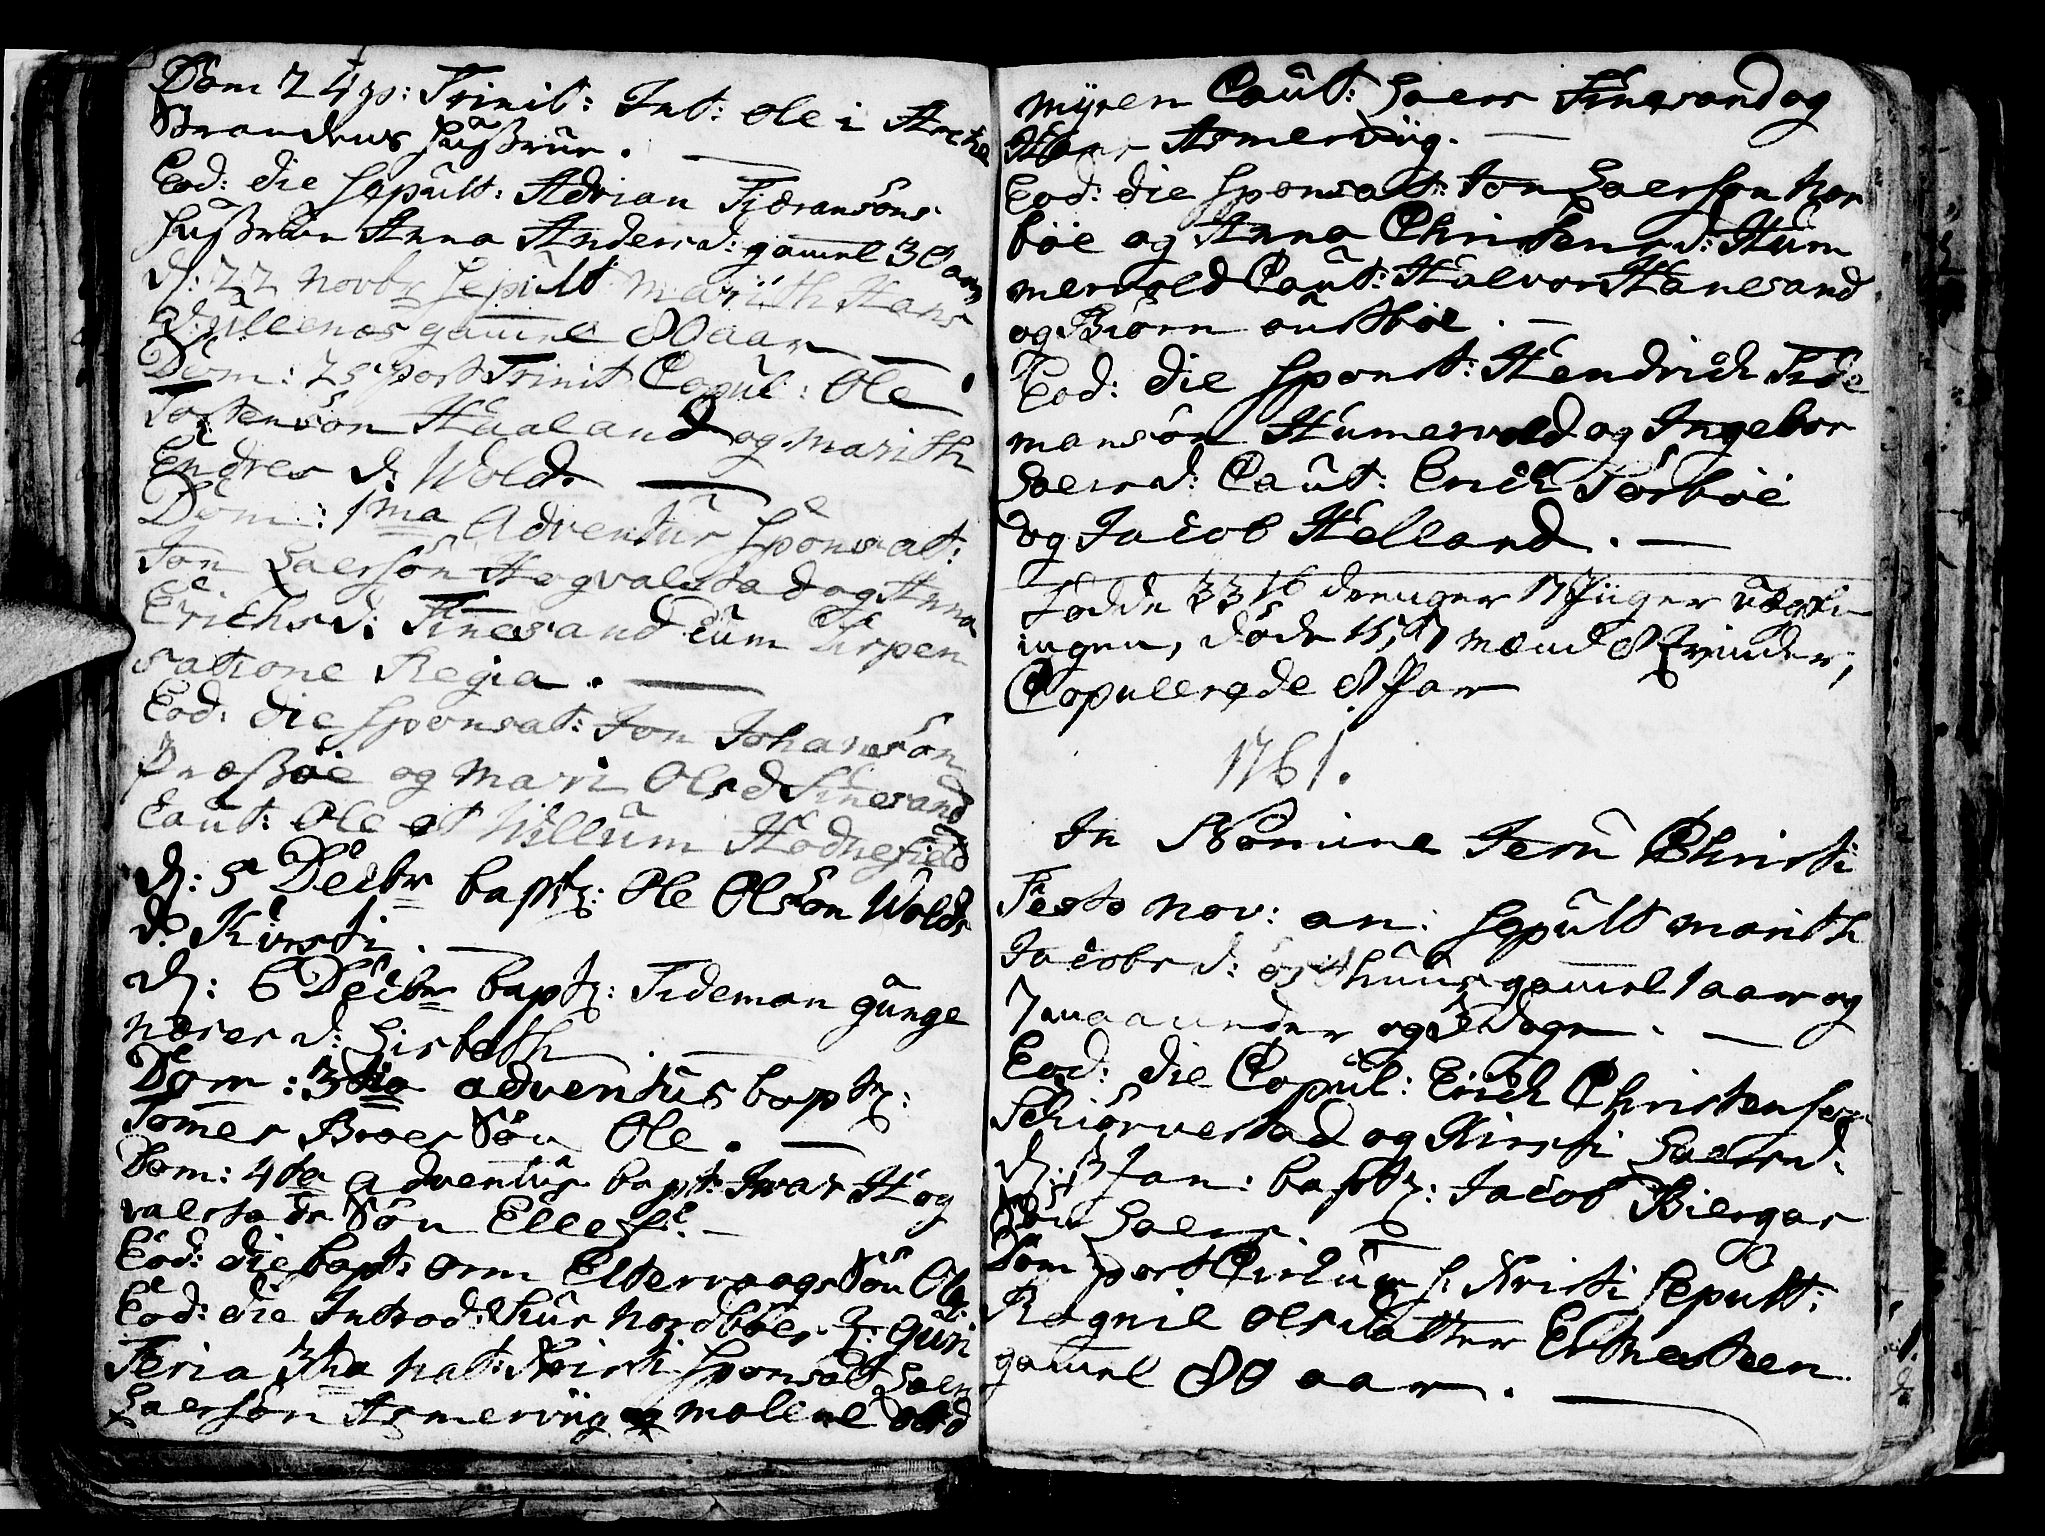 Dom 24 p: Trinit: Int: Ole i
Strandens hußtrue.
Eod: die Sepult: Adrian Tideransöns
hußtrue Anna Andersd: gamel 30 aar
d: 22 Novbr Sepult Marith Hans
d: gamel 80 aar
Dom: 25 post Trinit Copul: Ole
Tostensön Haaland og Marith
Endres d: Wold.
Dom: 1ma Adventus Sponsat:
Jon Laersön Hogvalstad og Anna
Erichsd: Finesand Cum Dispen
satione Regia.
Eod: die Sponsat: Jon Johansön
Præstböe og Mari Olsd Finesand
Caut: Ole et Willum Hodnefield
d: 5 Decbr bapt: Ole Olsön Wolds
d: Kirsti.
d: 6 Decbr bapt: Tideman gunge
næses d: Lisbeth.
Dom: 3tia adventus bapt:
Tomes Boes Sön Ole.
Dom: 4ta adventus bapt: Iwar Hog
valstads Sön Ellef.
Eod: die bapt: Orm Eltervaags Sön Ole
Eod: die Introd: Nordböes Guri
Feria 3tia nat: Kristi Sponsat Laers
Laersön Asmervig og Malene Olsd
myren Caut: Laers Finesand og
Asmervig.
Eod: die Sponsat: Jon Laersön Nor
böe og Anna Christensd: Hum
mervold Caut: Halvor Hanesand
og Biörn austböe.
Eod: die Sponst: Hendrich Tide
mansön Humervold og Ingebor
Laersd: Caut: Erich Sörböe
og Jacob Helland.
Födde 33 16 drenger 17 Piiger
ingen, döde 15, 7 mænd 8 Qvinder,
Copulerede 8 Par
1761.
In Nomine Jesu Christi
Festo nov: an: Sepult Marith
Jacobs d: östhuus gamel 1 aar og
7 maaneder og 3 dage.
Eod: die Copul: Erich Christensen
Schiörvestad og Kirsti Laersd:
d: 3 Jan: bapt: Jacob Biergas
Sön Laers.
Dom post Circum s: Kristi Sepult:
Ragnil Olsdatter Eknesteen
gamel 80 aar.